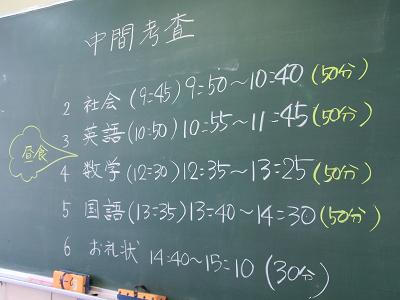 中間考査
2 社会 (9=45) 9=50〜10=40 (50分)
3 英語 (10=50) 10=55〜11=45 (50分)
昼食
4 数学 (12=30) 12=35〜13=25 (50分)
5 国語 (13=35) 13=40〜14=30 (50分)
6 お礼状 14=40〜15=10 (30分)